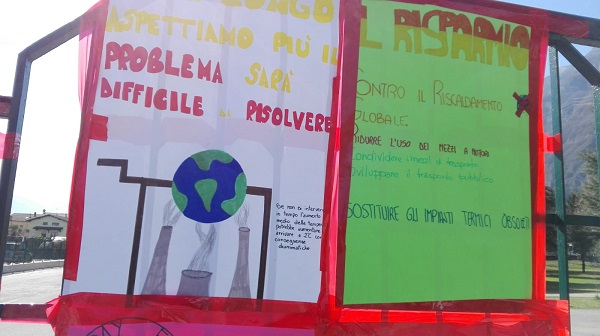 LUNGO
ASPETTIAMO PIÙ IL
PROBLEMA SARÀ
DIFFICILE DA RISOLVERE
Se non si interviene
in tempo l'aumento
medio della
potrebbe aumentare
arrivare a 2°C con
conseguenze
drammatiche
IL RISPARMIO
CONTRO IL RISCALDAMENTO
GLOBALE:
RIDURRE L'USO DEI MEZZI A MOTORE
Condividere i mezzi di trasporto
Sviluppare il trasporto pubblico
SOSTITUIRE GLI IMPIANTI TERMICI OBSOLETI